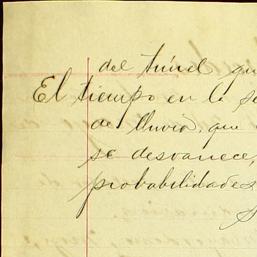 del túnel qu
El tiempo en la se
de lluvia, que
se desvanece,
probabilidades